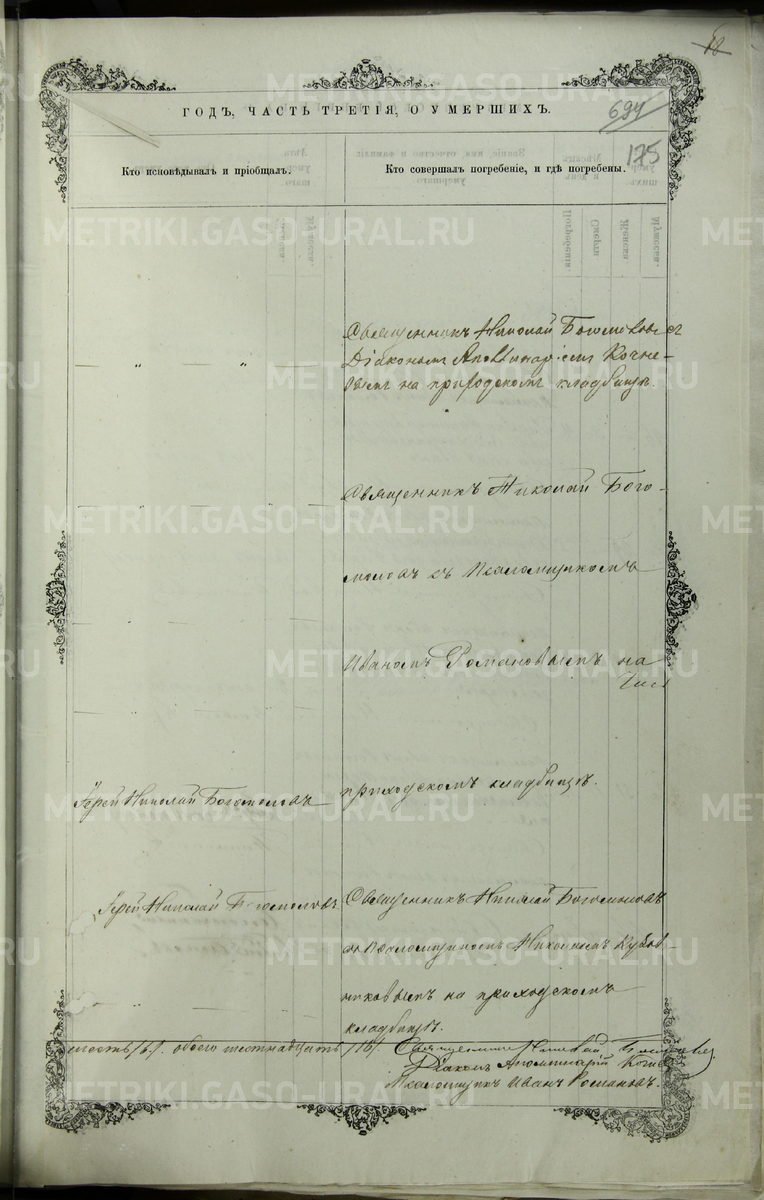 18
694
175
ГОДЪ, ЧАСТЬ ТРЕТІЯ, О УМЕРШИХЪ.
Кто исповѣдывалъ и пріобщалъ.
Кто совершалъ погребеніе, и гдѣ погребены.
Священникъ Николай Богомоловъ съ
Діакономъ Аполлинаріемъ Кочне-
вымъ на приходскомъ кладбищѣ.
Священникъ Николай Бого-
моловъ съ Псаломщикомъ
Иваномъ Романовымъ на
приходскомъ кладбищѣ.
Іерей Николай Богомоловъ
Іерей Николай Богомоловъ
Священникъ Николай Богомоловъ
съ Псаломщикомъ Николаемъ
на приходскомъ
кладбищѣ.
шесть /6/. обоего шестнадцать /16/.
Священникъ Николай Богомоловъ
Діаконъ Аполлинарій
Псаломщикъ Иванъ Романовъ.
METRIKI.GASO-URAL.RU